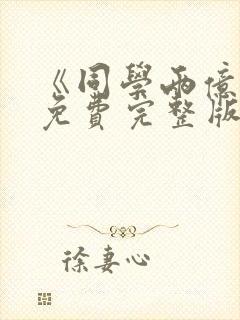 《同學兩億
免費完整版
徐妻心